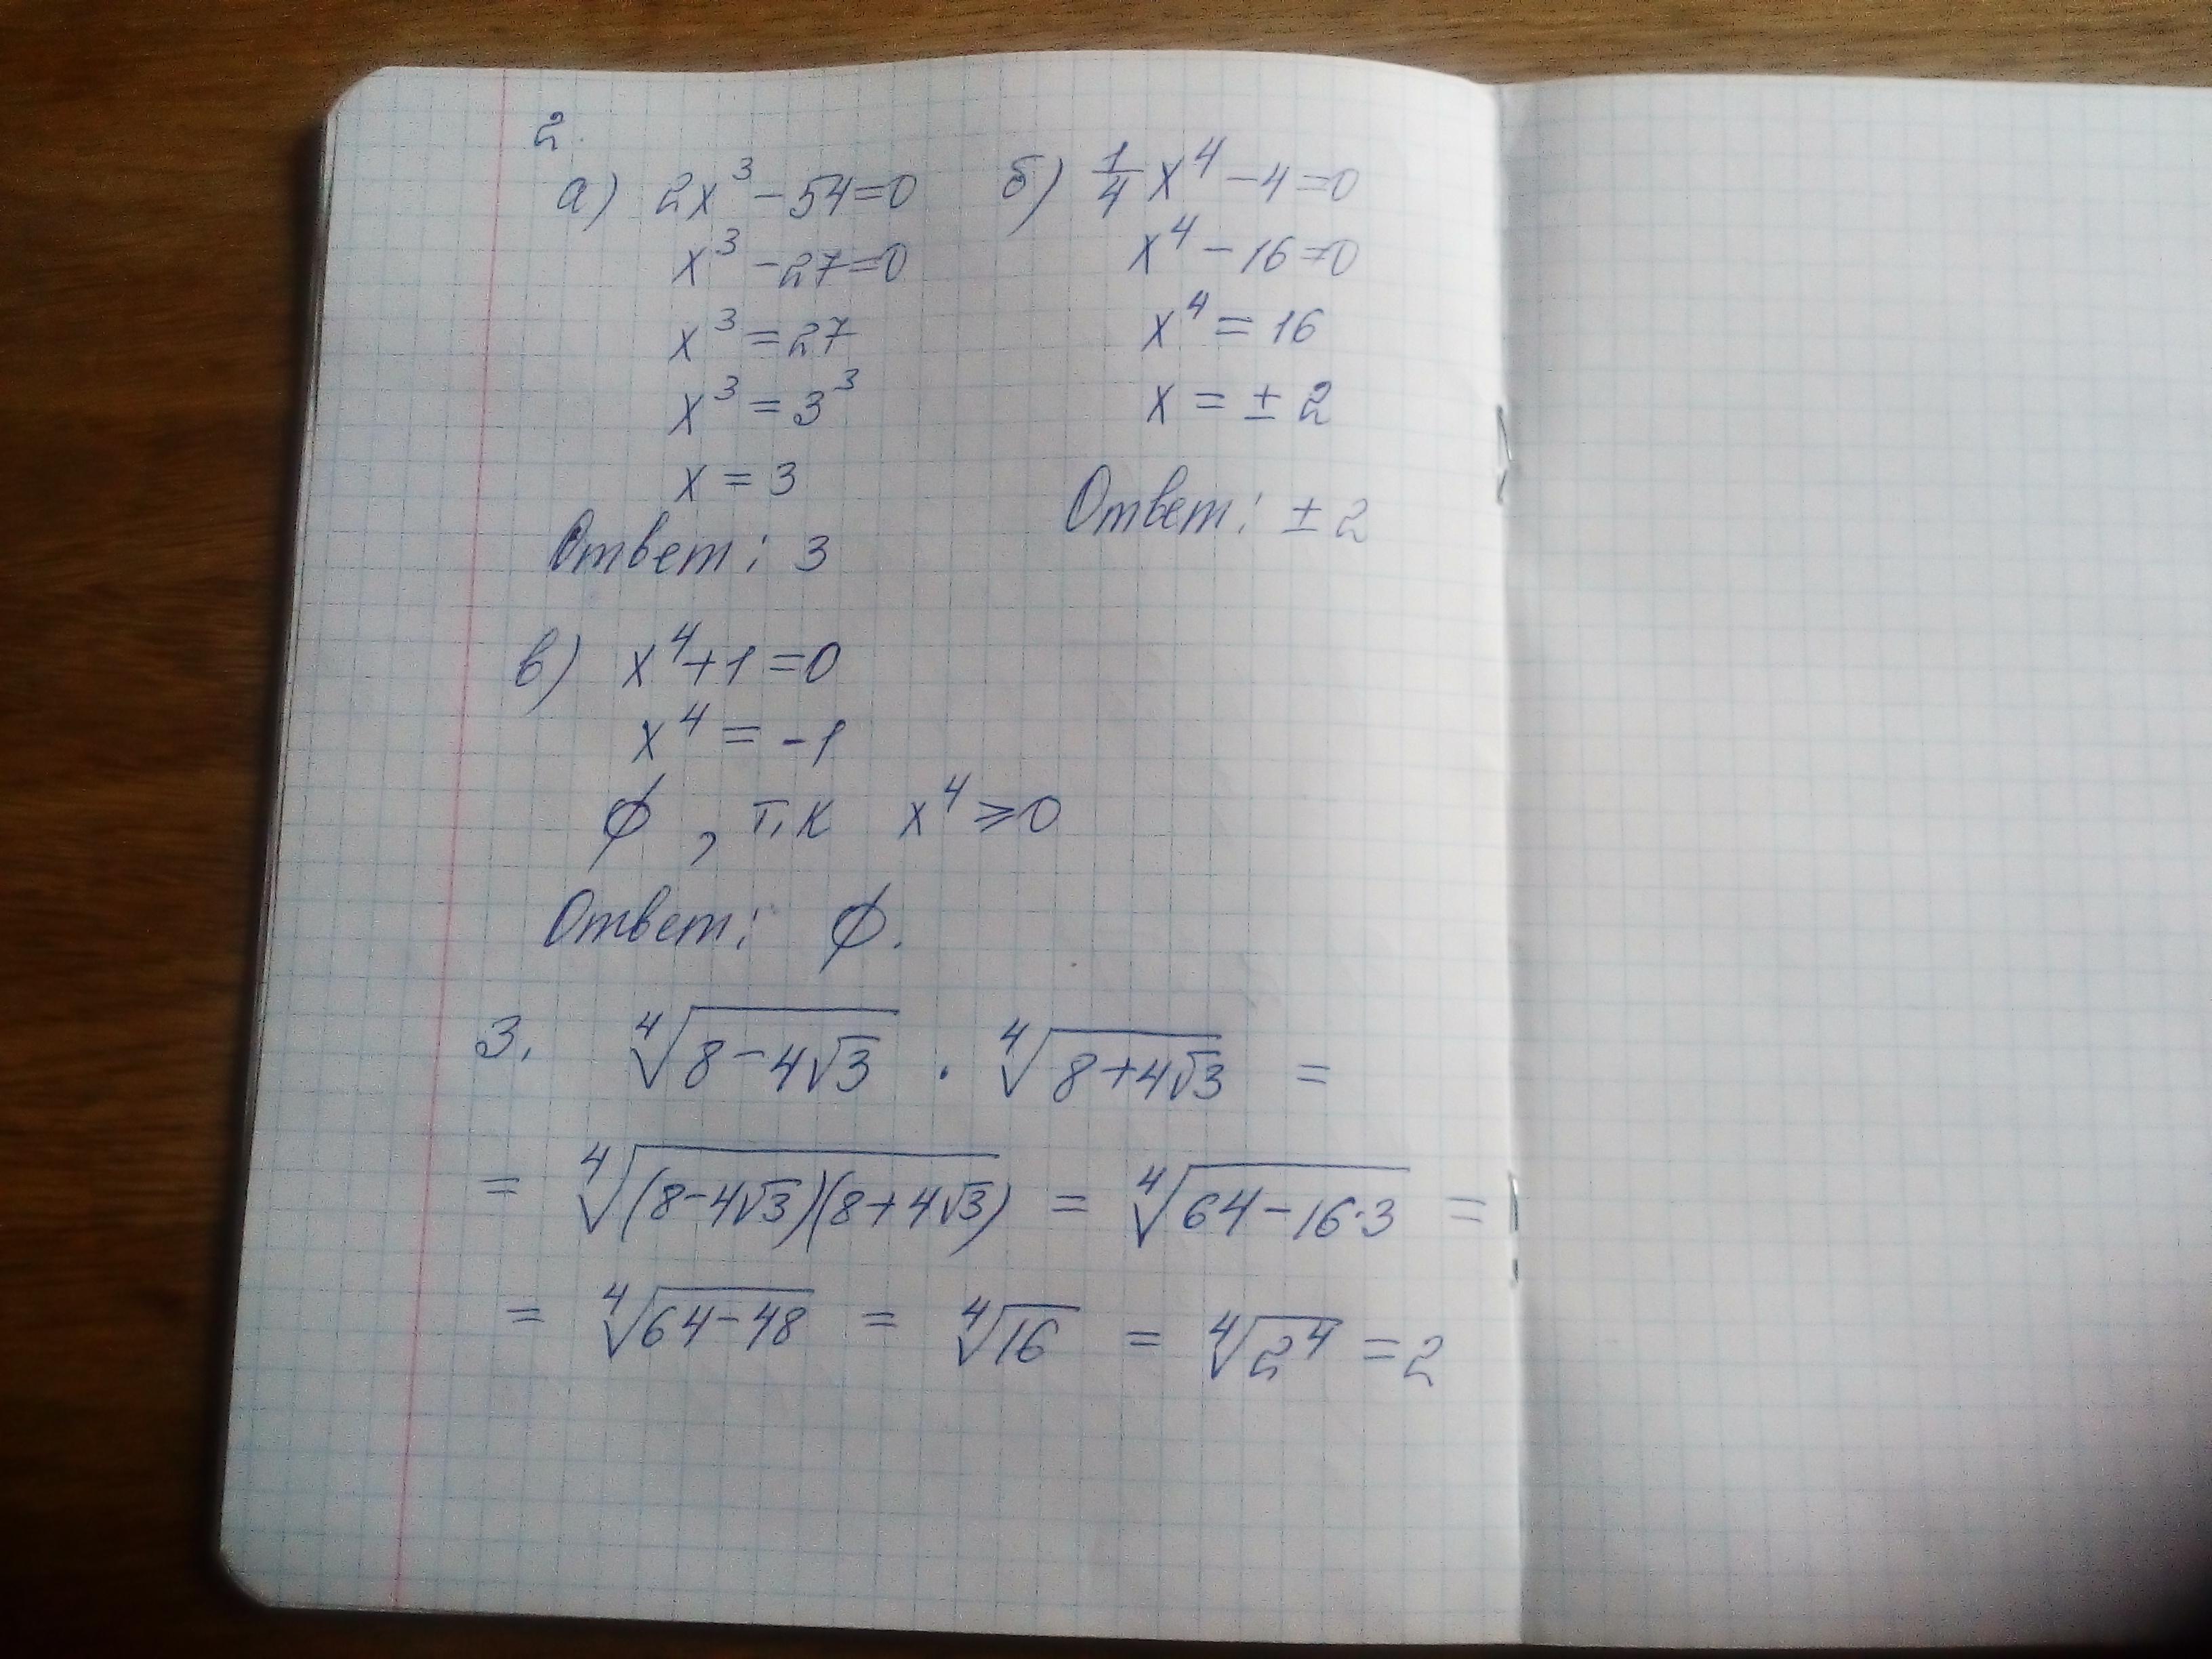 2.
а) 2x³ - 54 = 0
x³ - 27 = 0
x³ = 27
x³ = 3³
x = 3
Ответ: 3
б) 1/4 x⁴ - 4 = 0
x⁴ - 16 = 0
x⁴ = 16
x = ± 2
Ответ: ± 2
в) x⁴ + 1 = 0
x⁴ = -1
∅, т.к x⁴ ⩾ 0
Ответ: ∅.
3. ⁴√(8 - 4√3) · ⁴√(8 + 4√3) =
= ⁴√((8 - 4√3)(8 + 4√3)) = ⁴√(64 - 16·3) =
= ⁴√(64 - 48) = ⁴√16 = ⁴√(2⁴) = 2